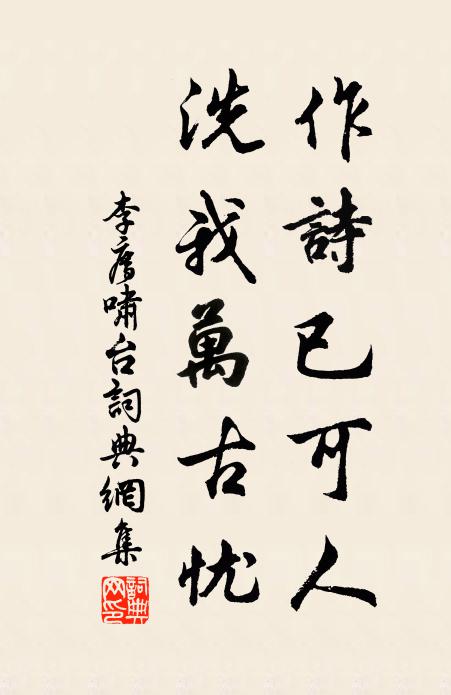 作詩已可人
洗我萬古忧
李廌嘯台詞典網集
詞典网印